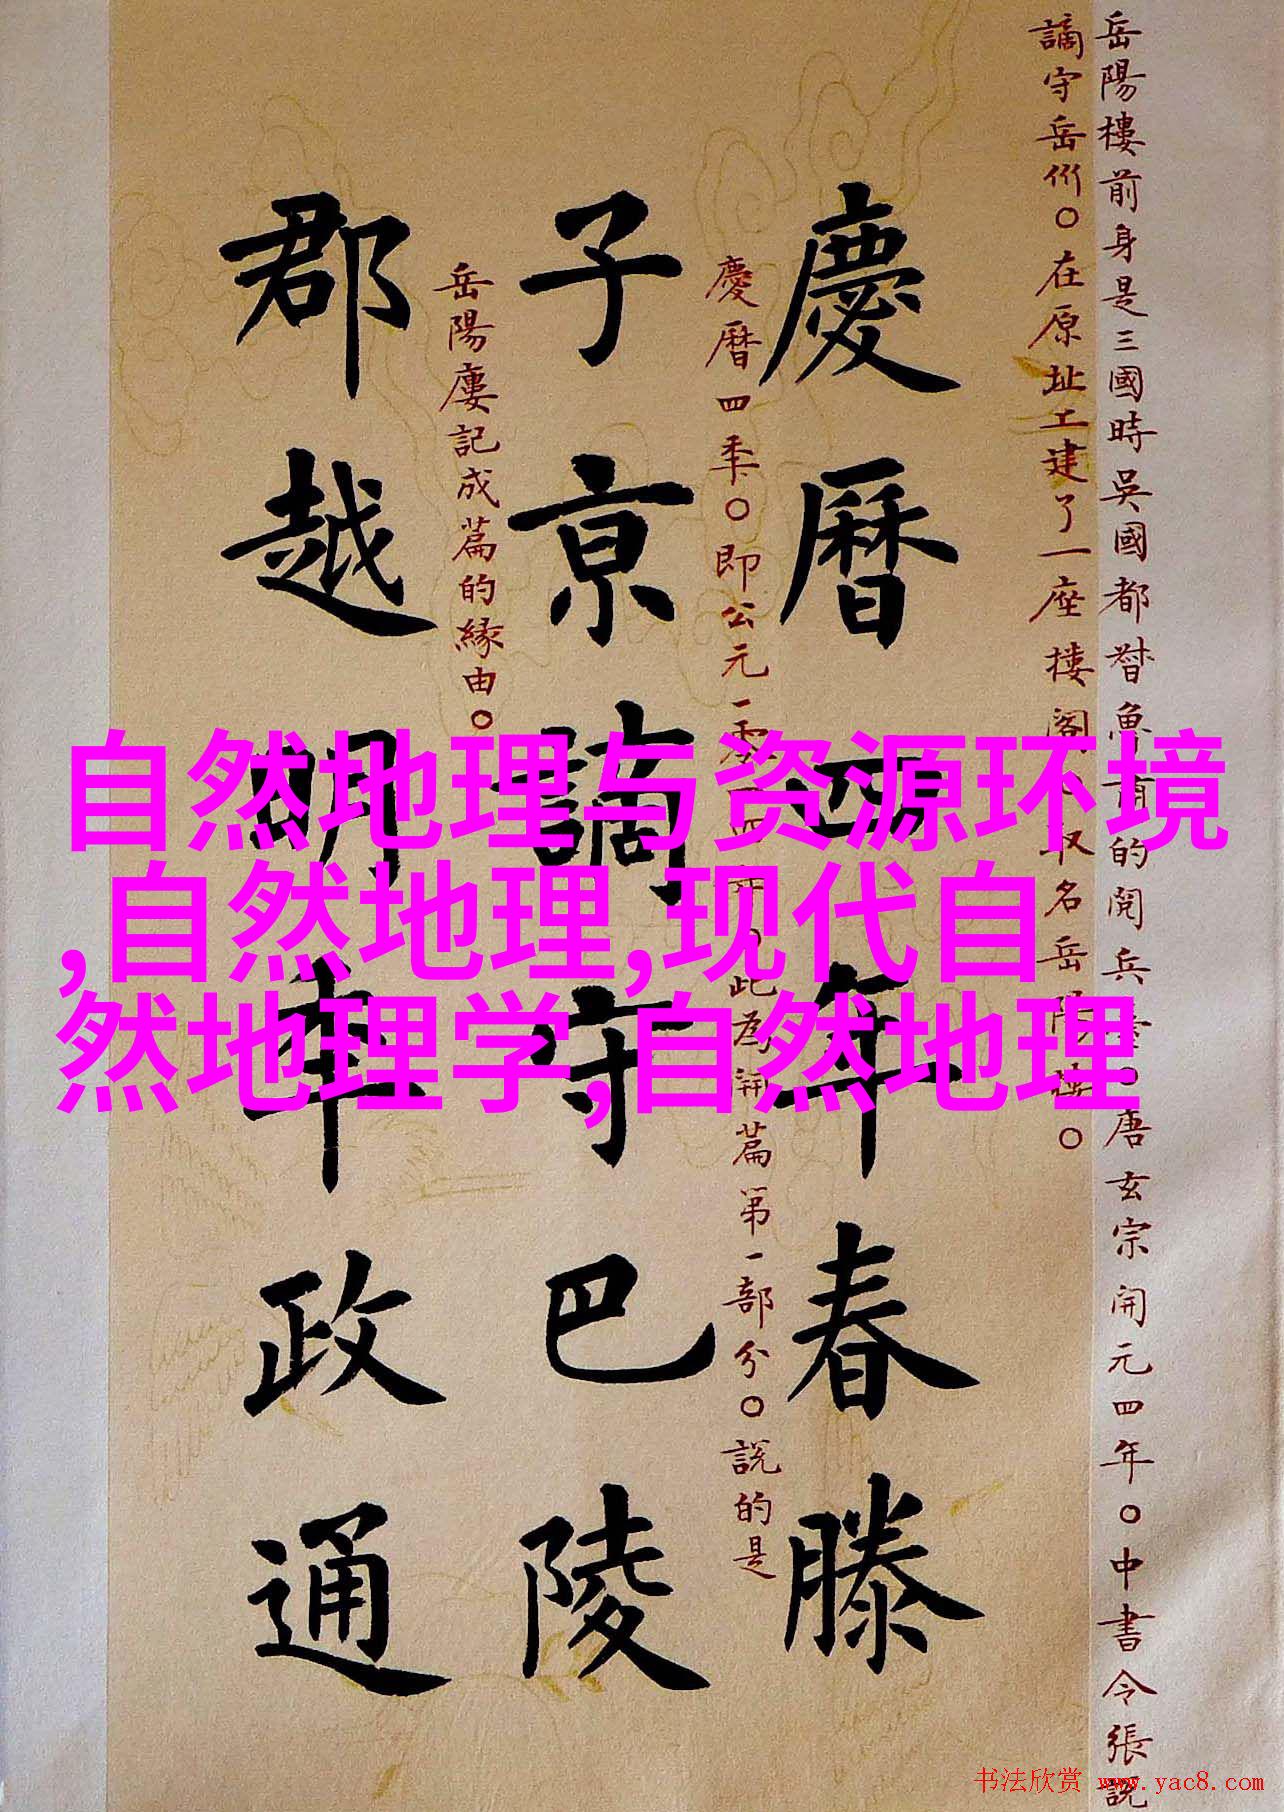 岳陽樓前身是三國時吳國都督魯肅的閱兵臺。唐玄宗開元四年。中書令張說
謫守岳州。在原址上建了一座樓閣。取名岳陽樓。
慶曆四年春滕
慶曆四年。即公元一零四四年。此為開篇第一部分。說的是
子京謫守巴陵
岳陽樓記成篇的緣由。
郡越明年政通
自然地理与资源环境
,自然地理,现代自
然地理学,自然地理
书法欣赏 www.yac8.com